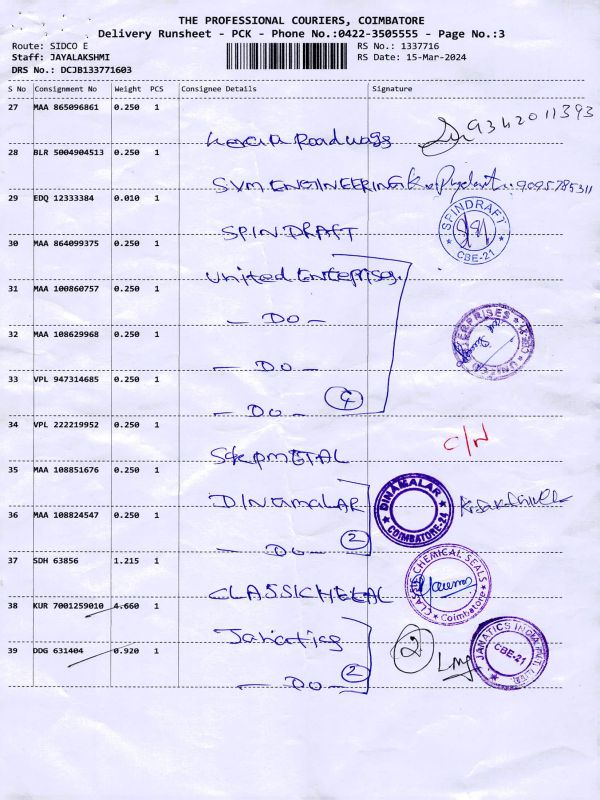 THE PROFESSIONAL COURIERS, COIMBATORE
Delivery Runsheet - PCK - Phone No.:0422-3505555 - Page No.:3
Route: SIDCO E
RS No.: 1337716
Staff: JAYALAKSHMI
RS Date: 15-Mar-2024
DRS No.: DCJB133771603
S No Consignment No Weight PCS Consignee Details Signature
27 MAA 865096861 0.250 1
Kerala Roadways 9342011393
28 BLR 5004904513 0.250 1
SVM ENGINEERING 9095785311
29 EDQ 12333384 0.010 1
SPINDRAFT SPINDRAFT CBE-21
30 MAA 864099375 0.250 1
United Enterprises.
31 MAA 100860757 0.250 1
— DO —
32 MAA 108629968 0.250 1
— DO — UNITED ENTERPRISES
33 VPL 947314685 0.250 1
— DO — 4
34 VPL 222219952 0.250 1
METAL C/N
35 MAA 108851676 0.250 1
DINAMALAR DINAMALAR COIMBATORE-24
36 MAA 108824547 0.250 1
— DO — 2
37 SDH 63856 1.215 1
CLASSICHETAL CLASSIC CHEMICAL SEALS Coimbatore
38 KUR 7001259010 4.660 1
Janatics 2
39 DDG 631404 0.920 1
— DO — 2 JANATICS INDIA CBE-21